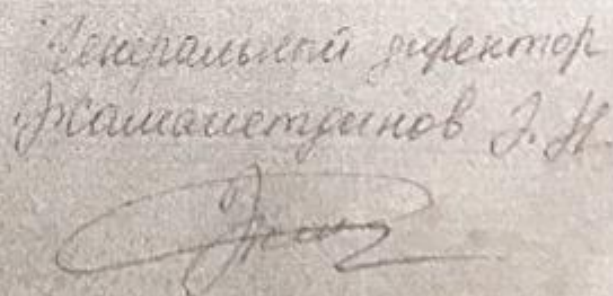 Генеральный директор
Жамалетдинов Э. Н.